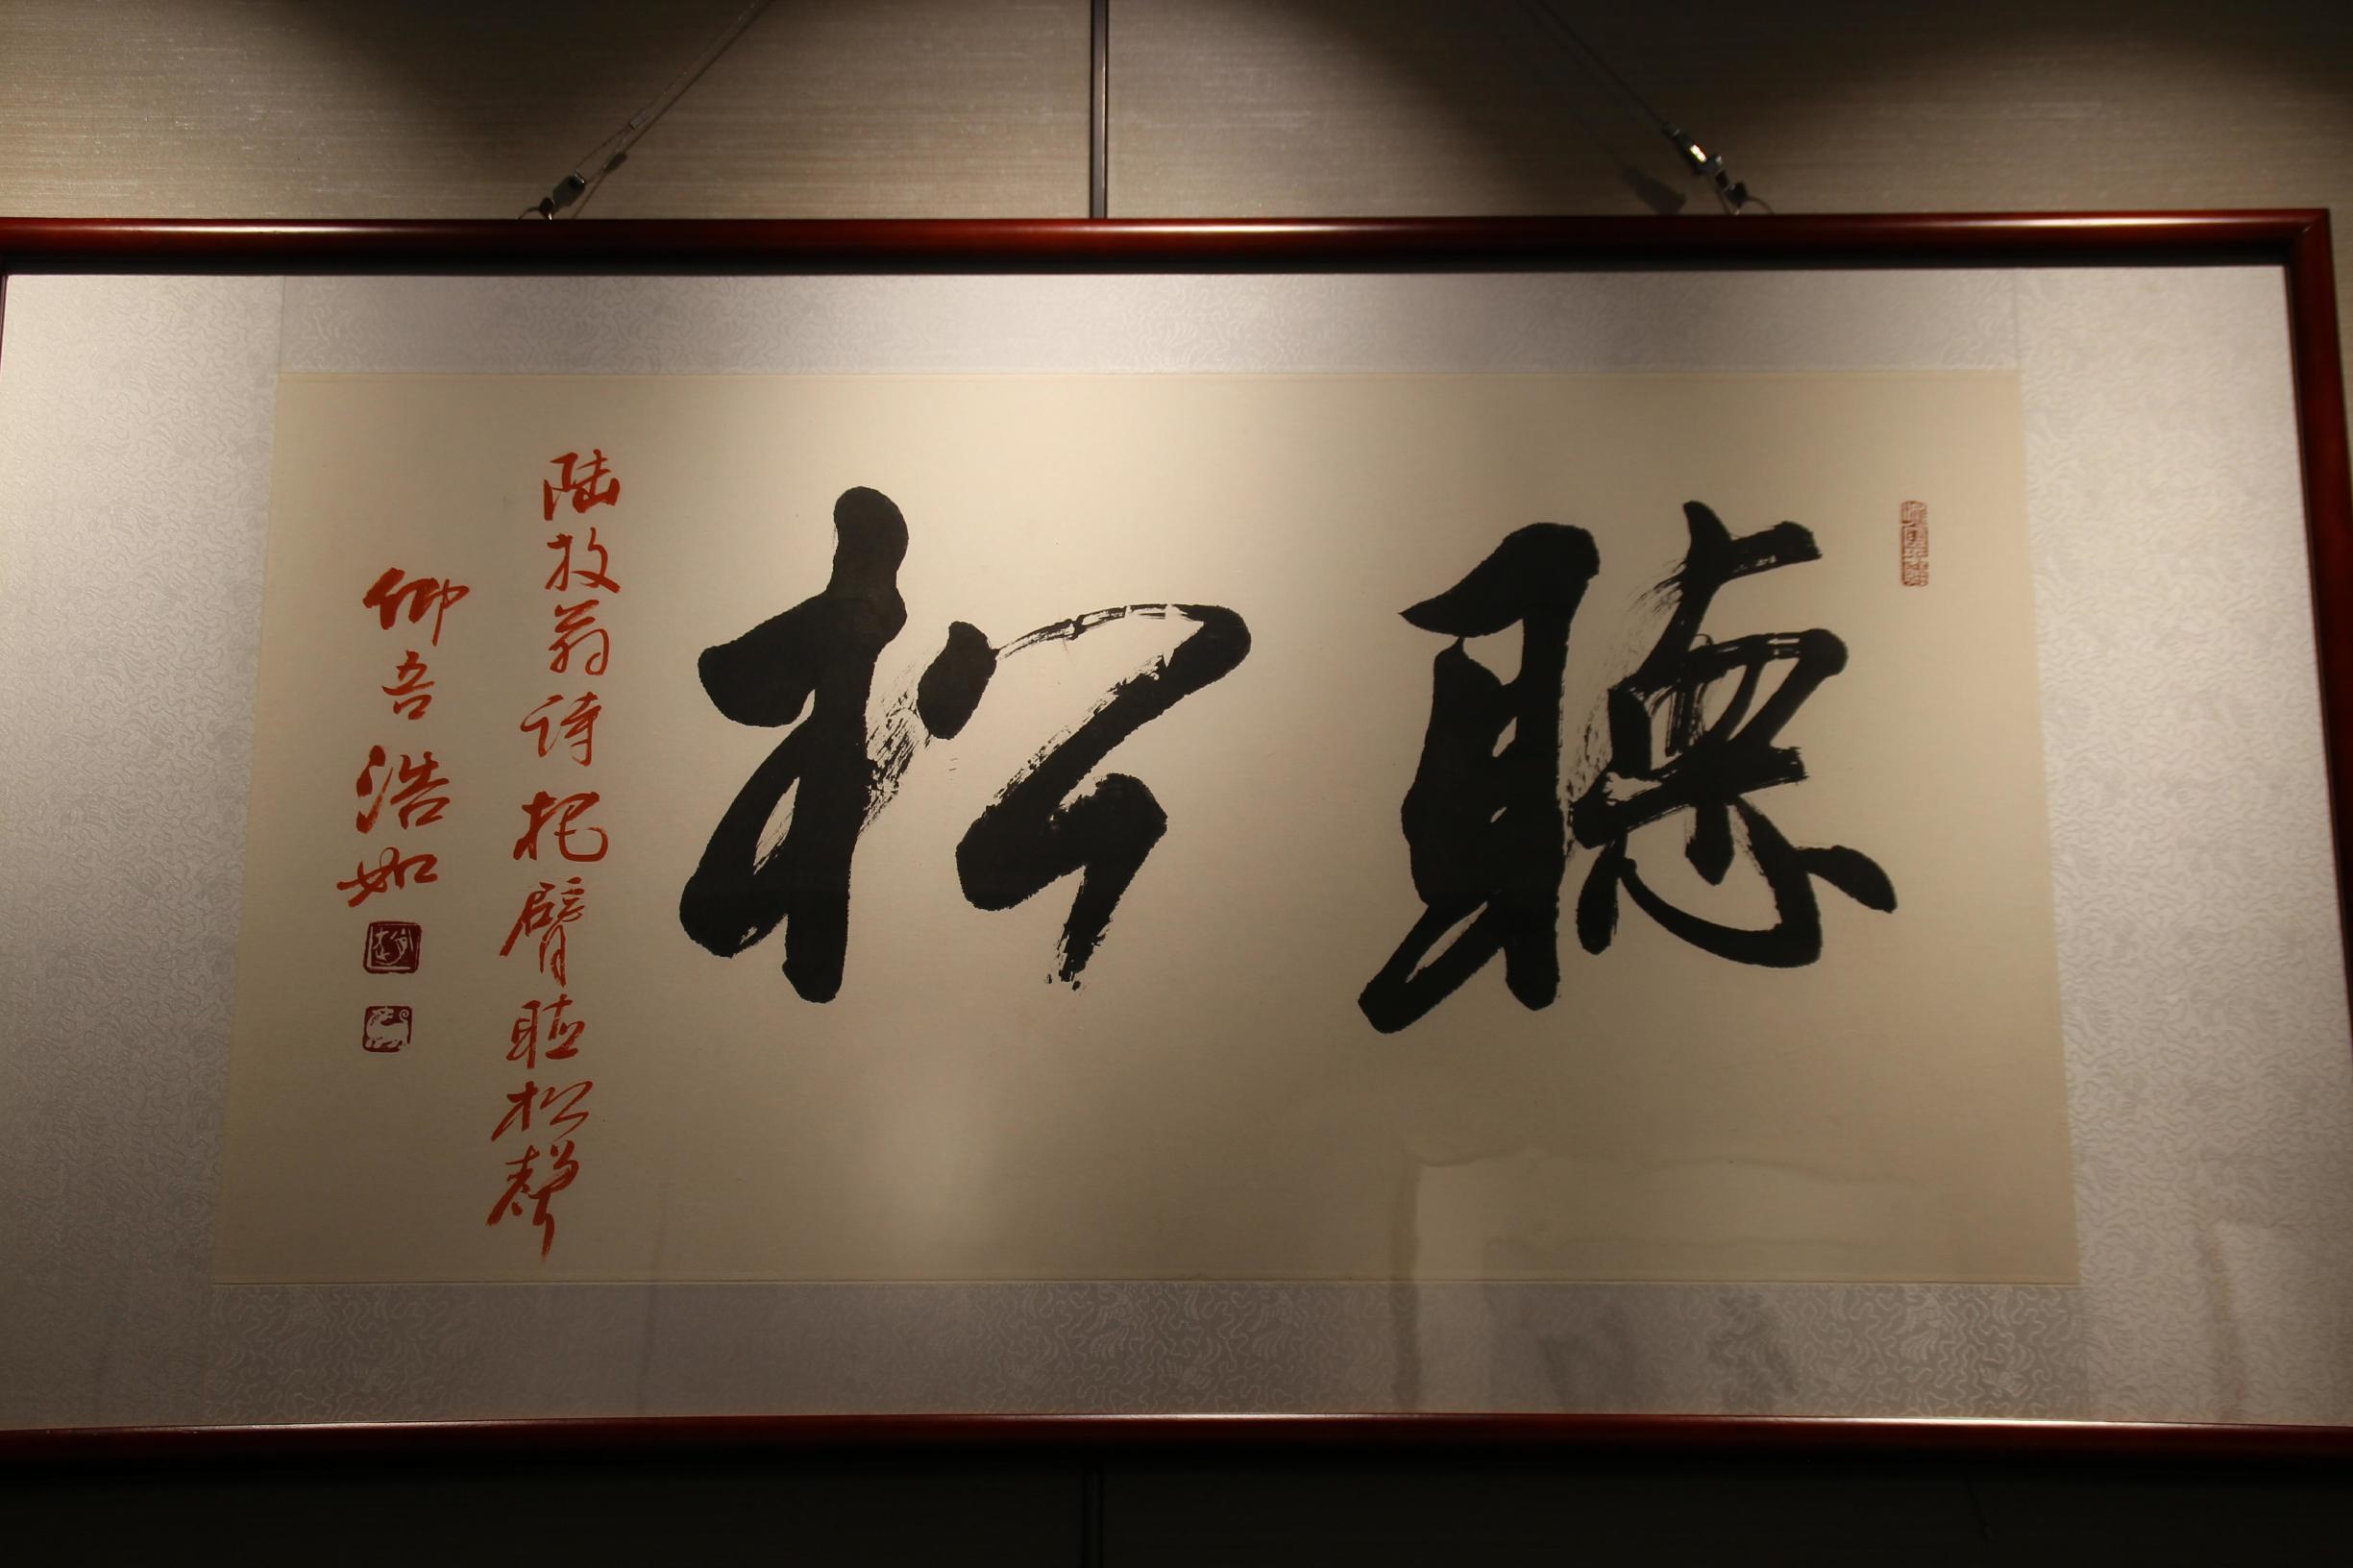 聽松
陆放翁诗把臂聽松聲
仰吾浩如